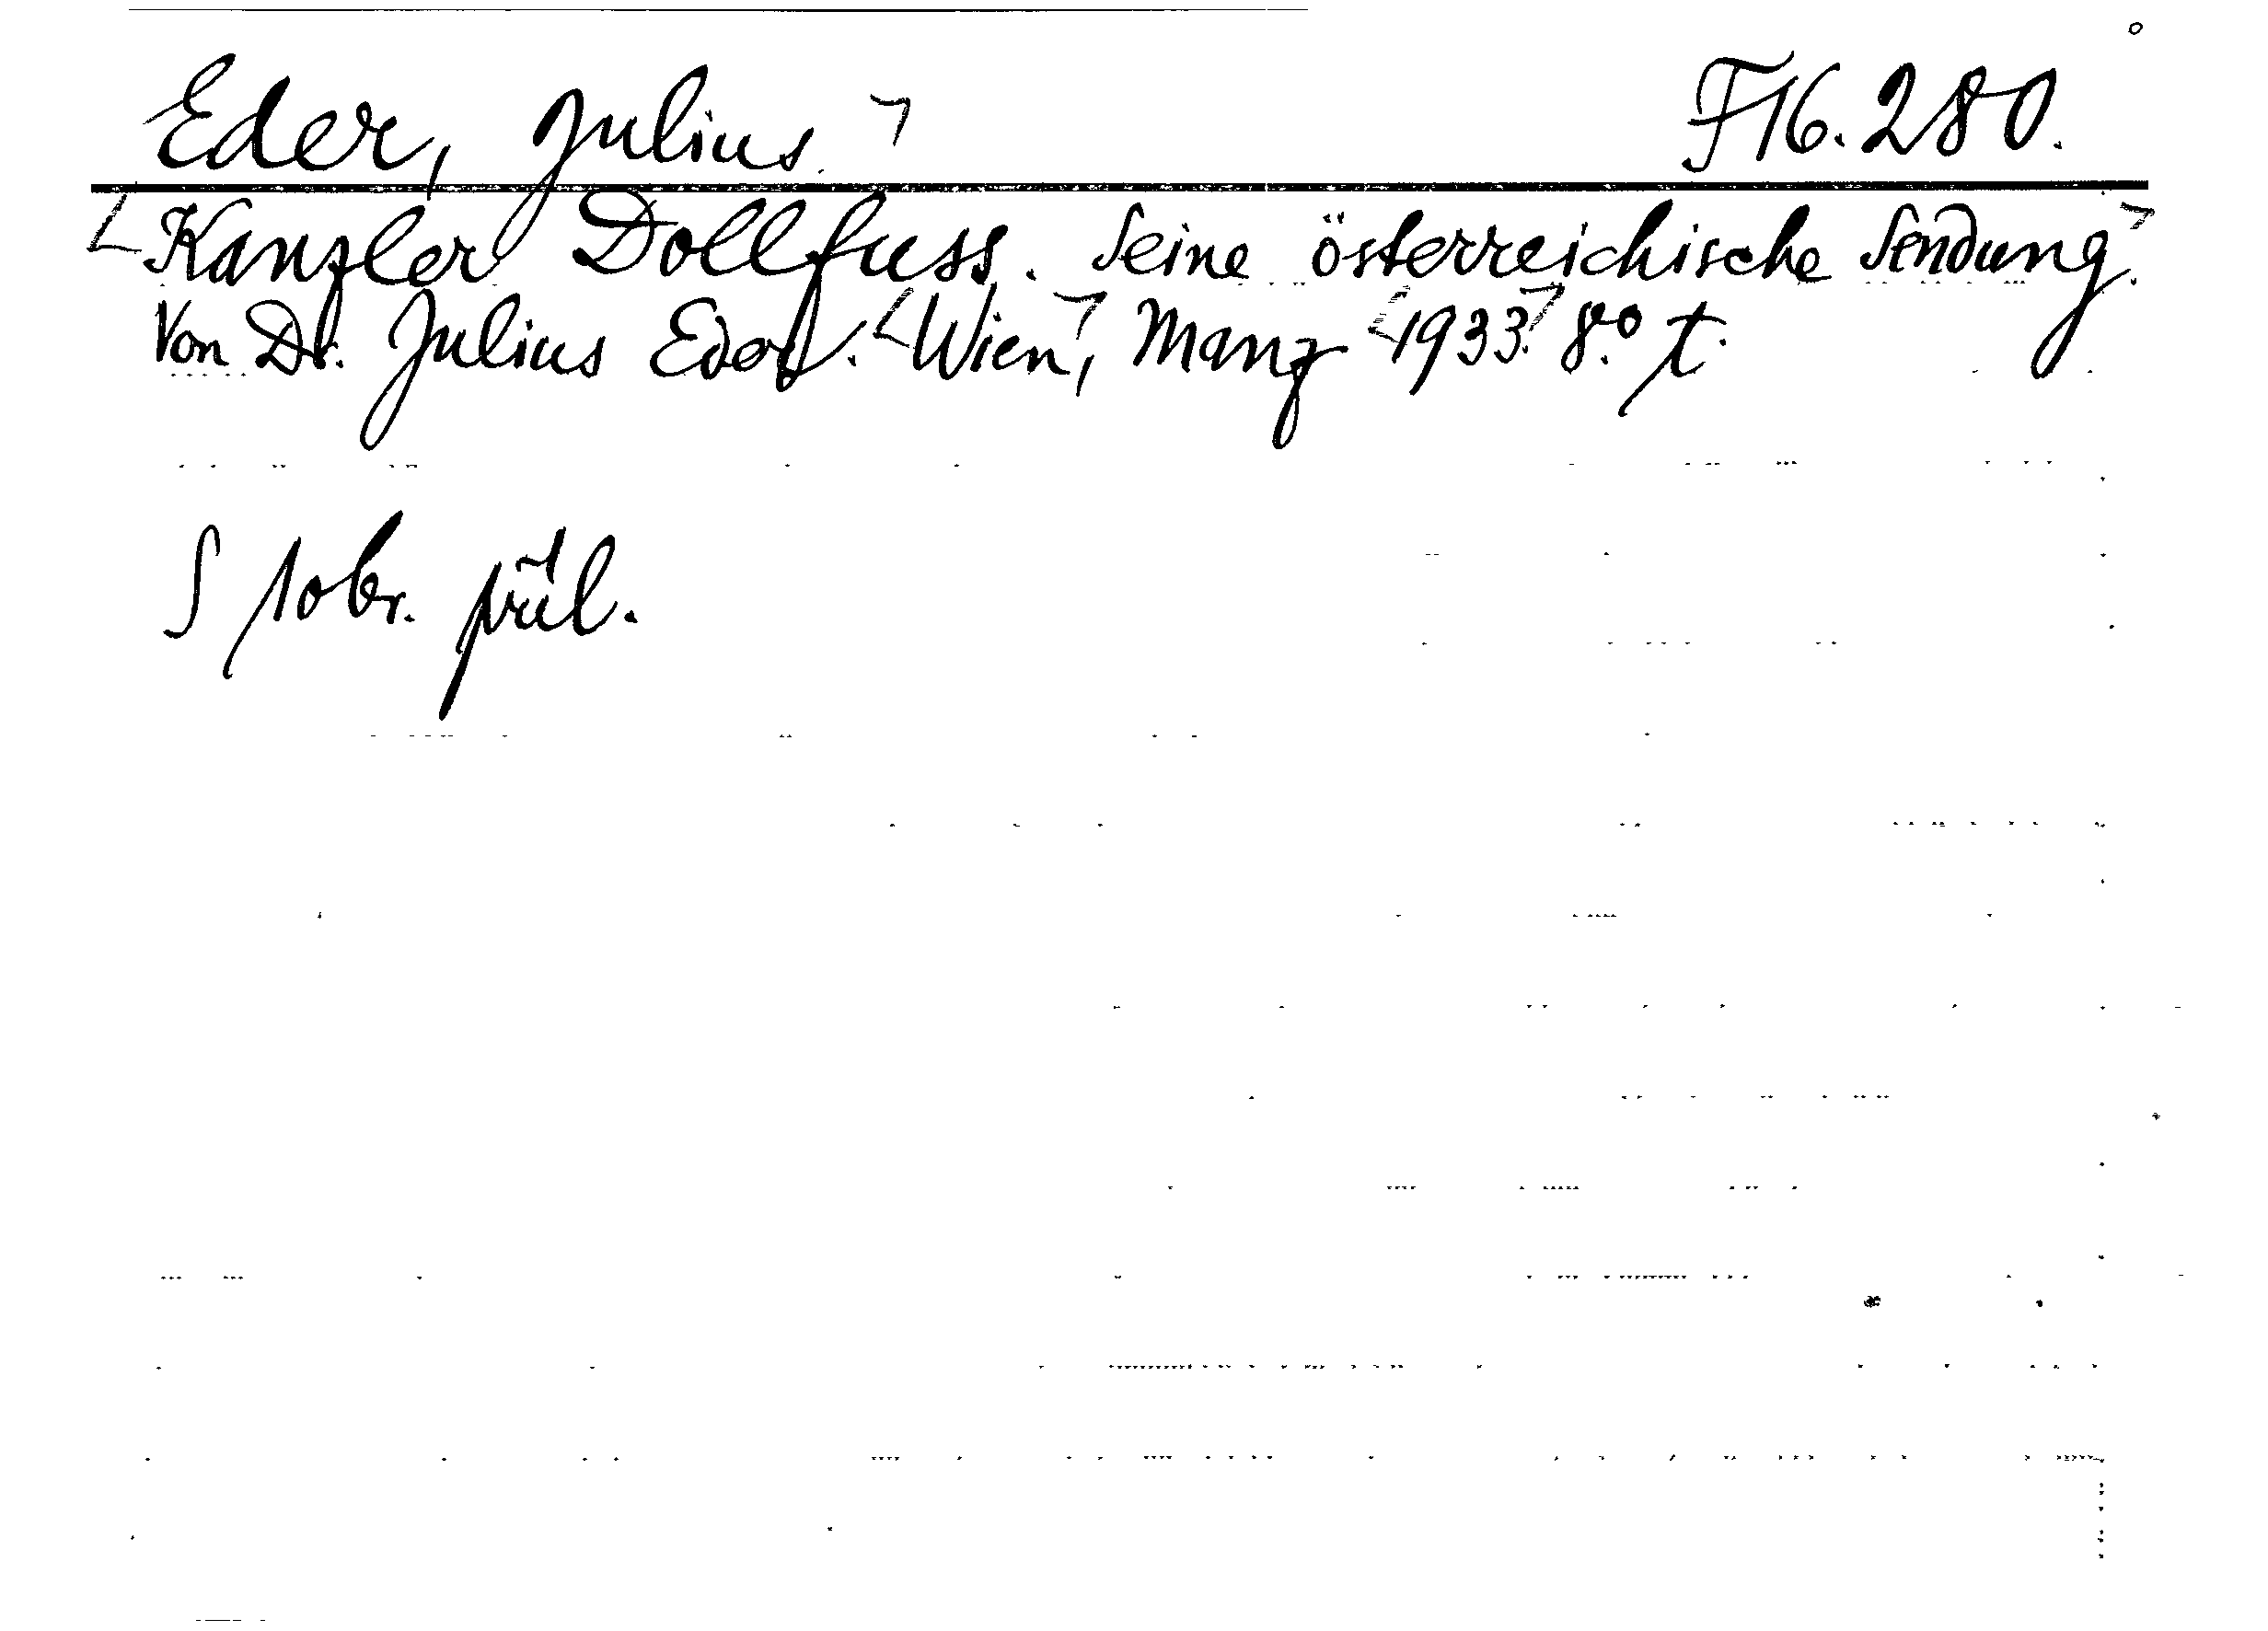 Eder, Julius ⌝ F 16.280.
⌊Kanzler Dollfuss. Seine österreichische Sendung⌝.
Von Dr. Julius Eder. ⌊Wien⌝, Manz ⌊1933⌝. 8.° t.
S 1 obr. příl.